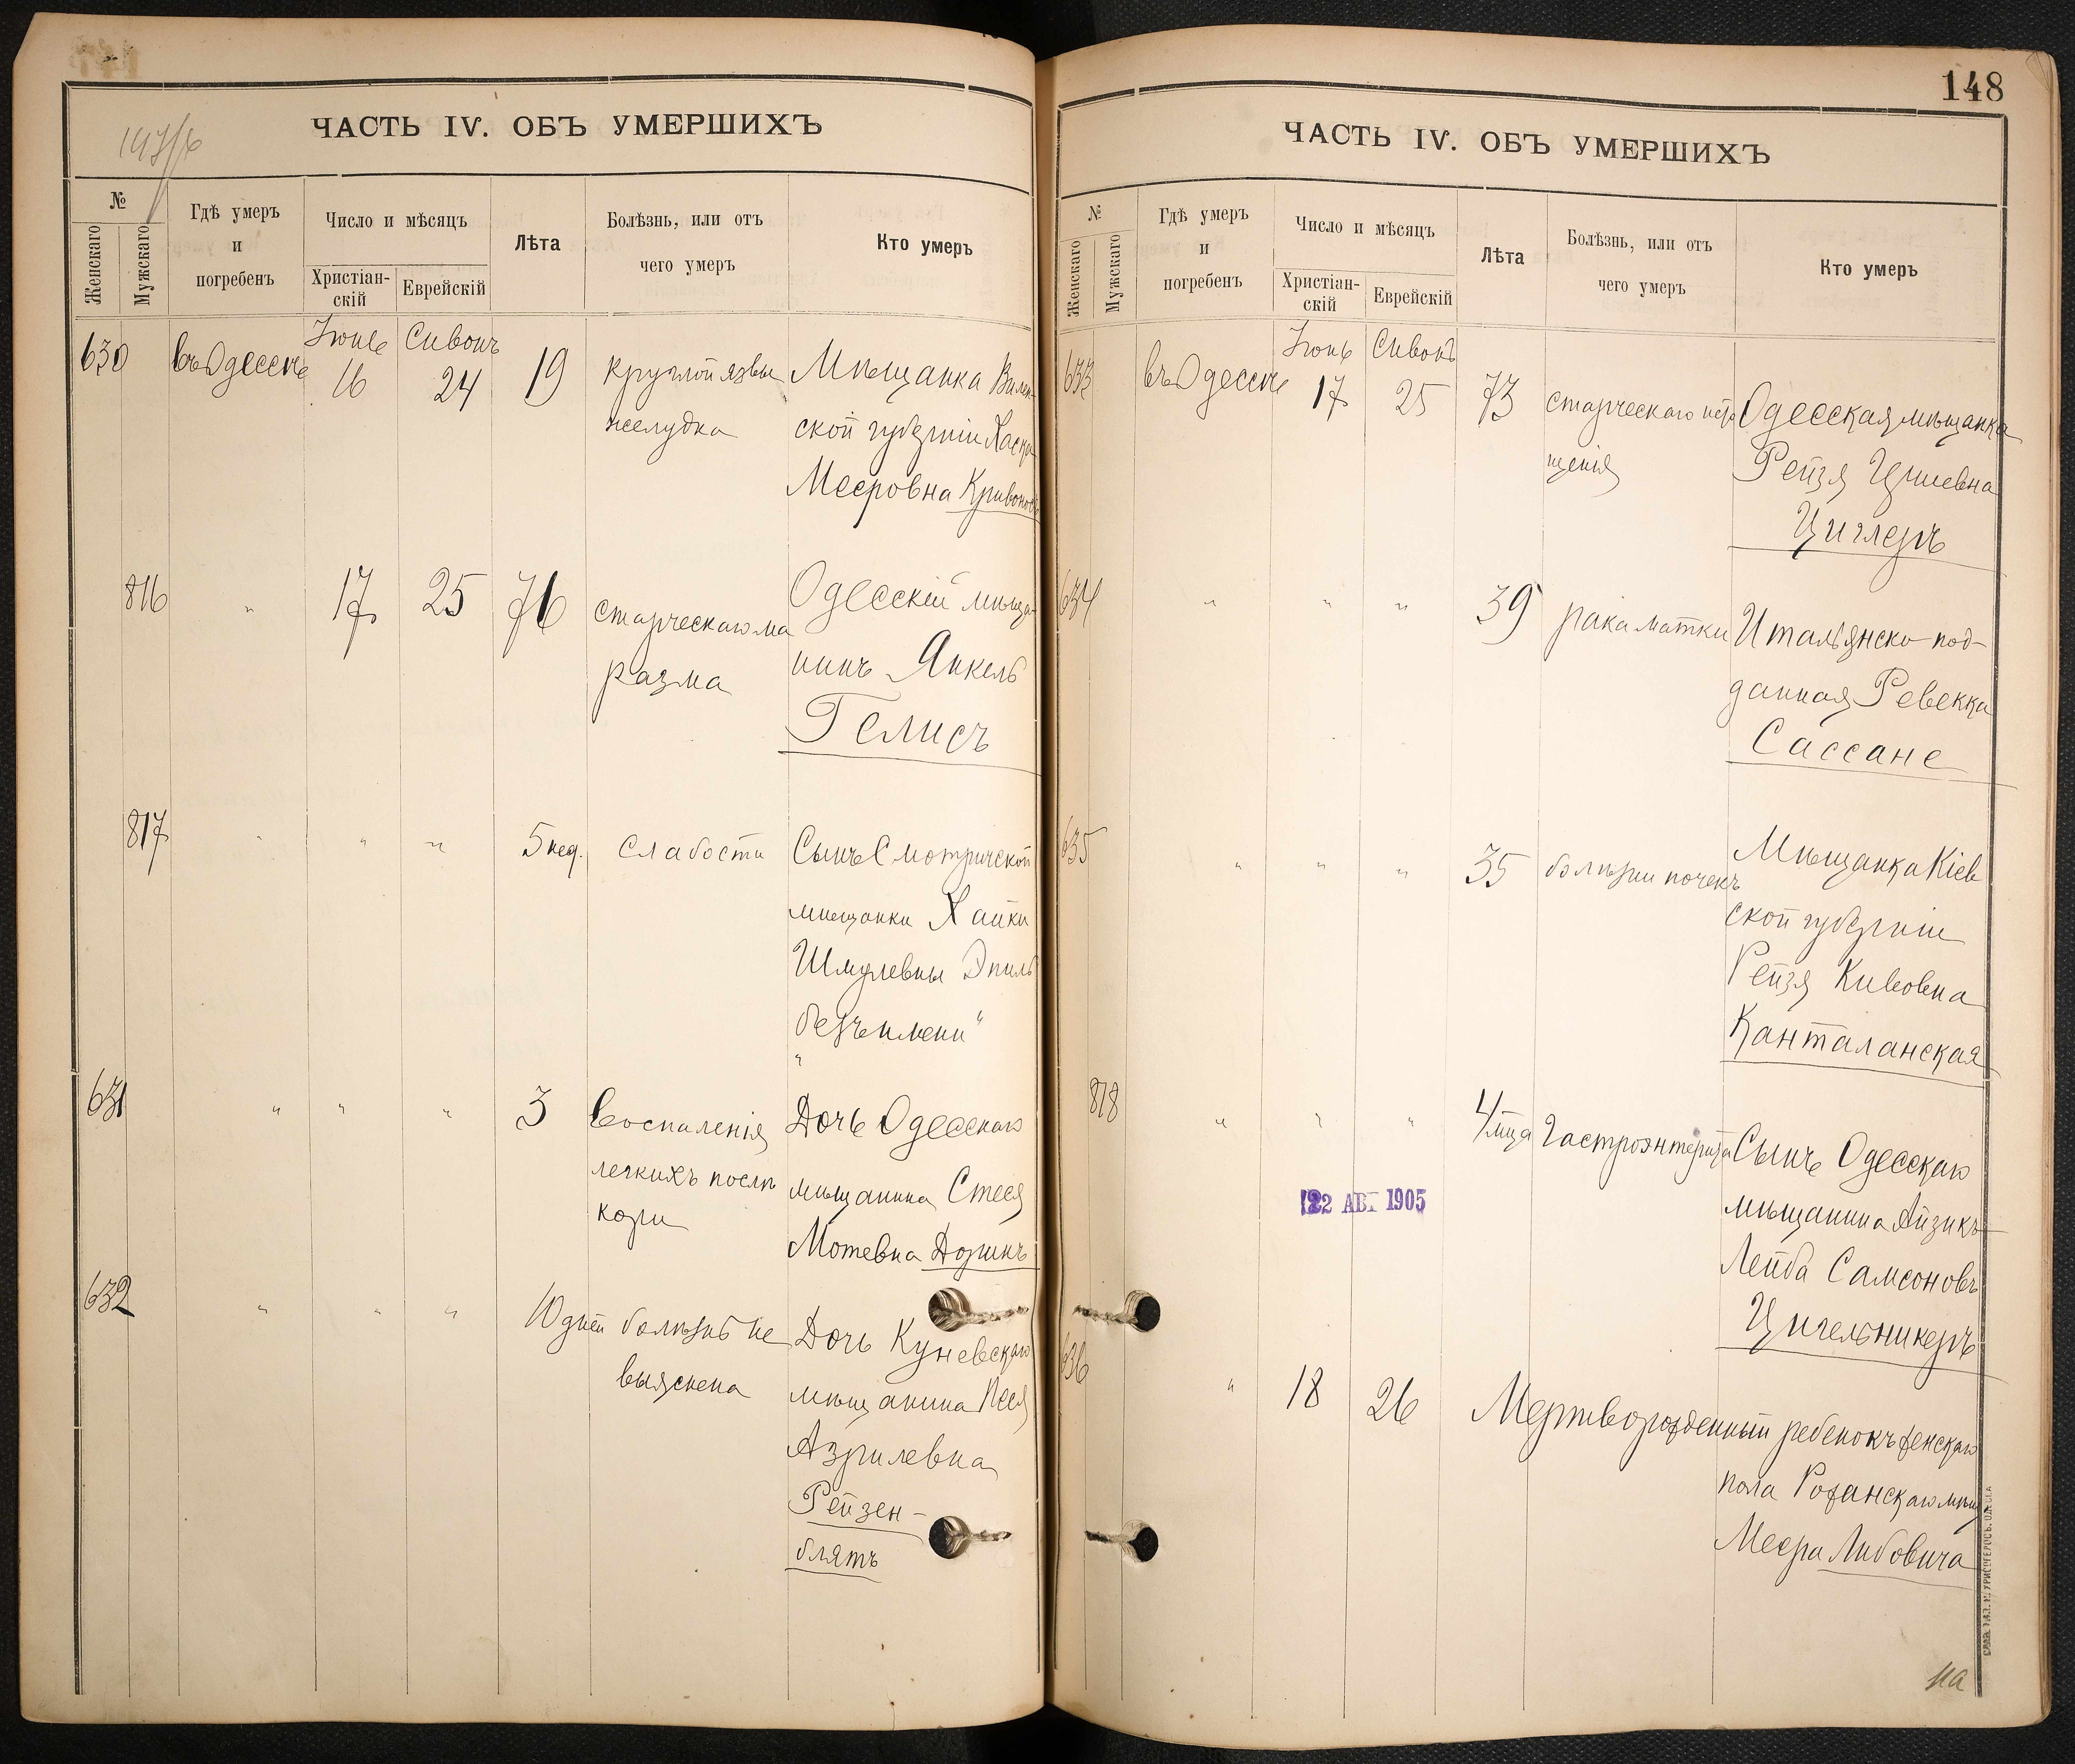 ЧАСТЬ IV. ОБЪ УМЕРШИХЪ
№
Женскаго
Мужскаго
Гдѣ умеръ
и
погребенъ
Число и мѣсяцъ
Христіан-
скій
Еврейскій
Лѣта
Болѣзнь, или отъ
чего умеръ
Кто умеръ
Іюнь Сивонъ
630 въ Одессѣ 16 24 19 круглой язвы Мѣщанка Вилен-
желудка ской губерніи Хаска
Мееровна Кривоносъ
816 " 17 25 76 старческаго ма Одесскій мѣща-
разма нинъ Янкель
Гелисъ
817 " " " 5 нед. слабости Сынъ Смотричской
мѣщанки Хайки
Шмулевны
безъ имени"
"
631 " " " 3 Воспаленія Дочь Одесскаго
легкихъ послѣ мѣщанина Стеся
кори Мотевна Доринъ
632 " " " 10 дней болѣзнь не Дочь Куневскаго
выяснена мѣщанина Песя
Азрилевна
Рейзен-
блятъ
148
ЧАСТЬ IV. ОБЪ УМЕРШИХЪ
№
Женскаго
Мужскаго
Гдѣ умеръ
и
погребенъ
Число и мѣсяцъ
Христіан-
скій
Еврейскій
Лѣта
Болѣзнь, или отъ
чего умеръ
Кто умеръ
Іюнь Сивонъ
633 въ Одессѣ 17 25 73 старческаго исто Одесская мѣщанка
щенія Рейзя
Циглеръ
634 " " " 39 рака матки Итальянско-под-
данная Ревекка
Сассане
635 " " " 35 болѣзни почекъ Мѣщанка Кіев
ской губерніи
Рейзя Кивовна
Канталанская
818 " " " 4 мца Гастроэнтерита Сынъ Одесскаго
мѣщанина Айзикъ-
Лейба Самсоновъ
Цигельникеръ
22 АВГ 1905
636 " 18 26 Мертворожденный ребенокъ женскаго
пола Рожанскаго мѣщ
Меера Либовича